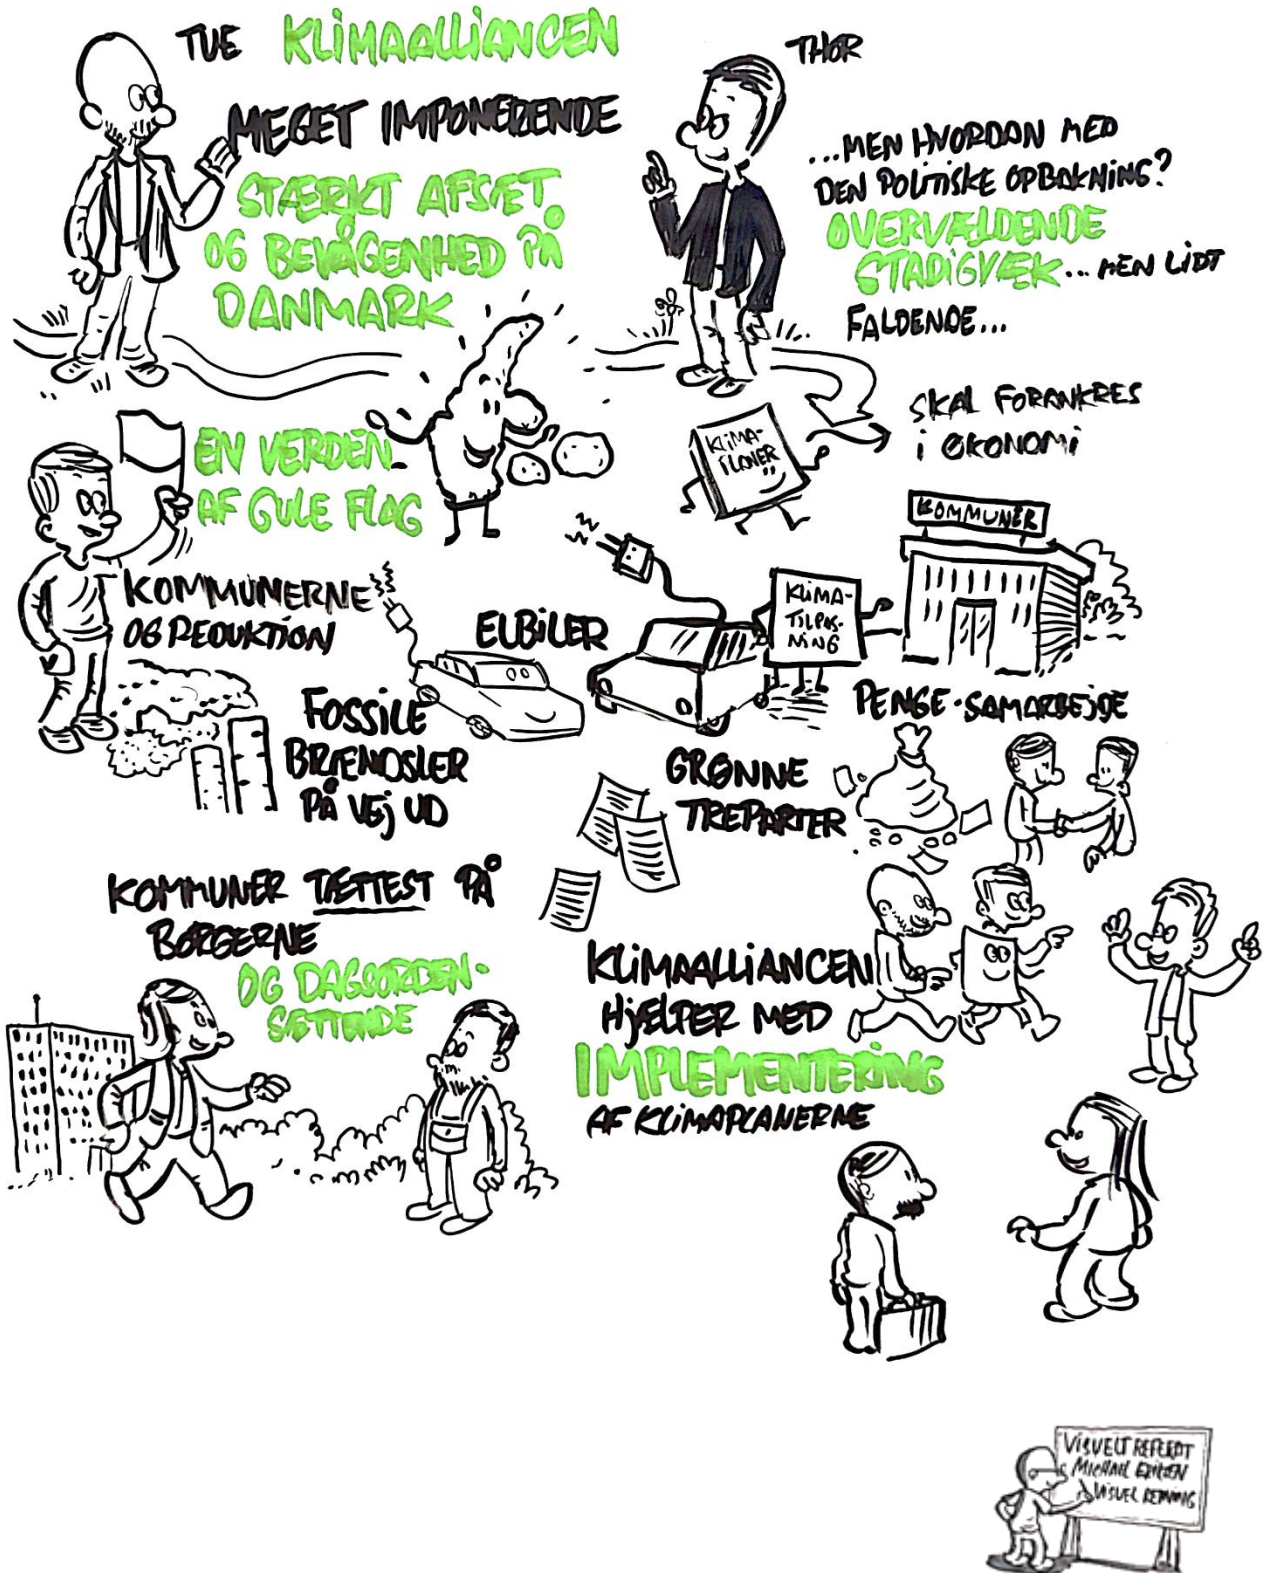 TUE KLIMAALLIANCEN
MEGET IMPONERENDE
STÆRKT AFSÆT
OG BEVÅGENHED PÅ
DANMARK
THOR
...MEN HVORDAN MED
DEN POLITISKE OPBAKNING?
OVERVÆLDENDE
STADIGVÆK... MEN LIDT
FALDENDE...
EN VERDEN
AF GULE FLAG
KLIMA-
PLANER
SKAL FORANKRES
i ØKONOMI
KOMMUNER
KOMMUNERNE
OG REDUKTION
ELBILER
KLIMA-
TILPAS-
NING
FOSSILE
BRÆNDSLER
PÅ VEJ UD
PENGE-SAMARBEJDE
GRØNNE
TREPARTER
KOMMUNER TÆTTEST PÅ
BORGERNE
OG DAGSORDEN-
SÆTTENDE
KLIMAALLIANCEN
HJÆLPER MED
IMPLEMENTERING
AF KLIMAPLANERNE
VISUELT REFERAT
MICHAEL
VISUEL